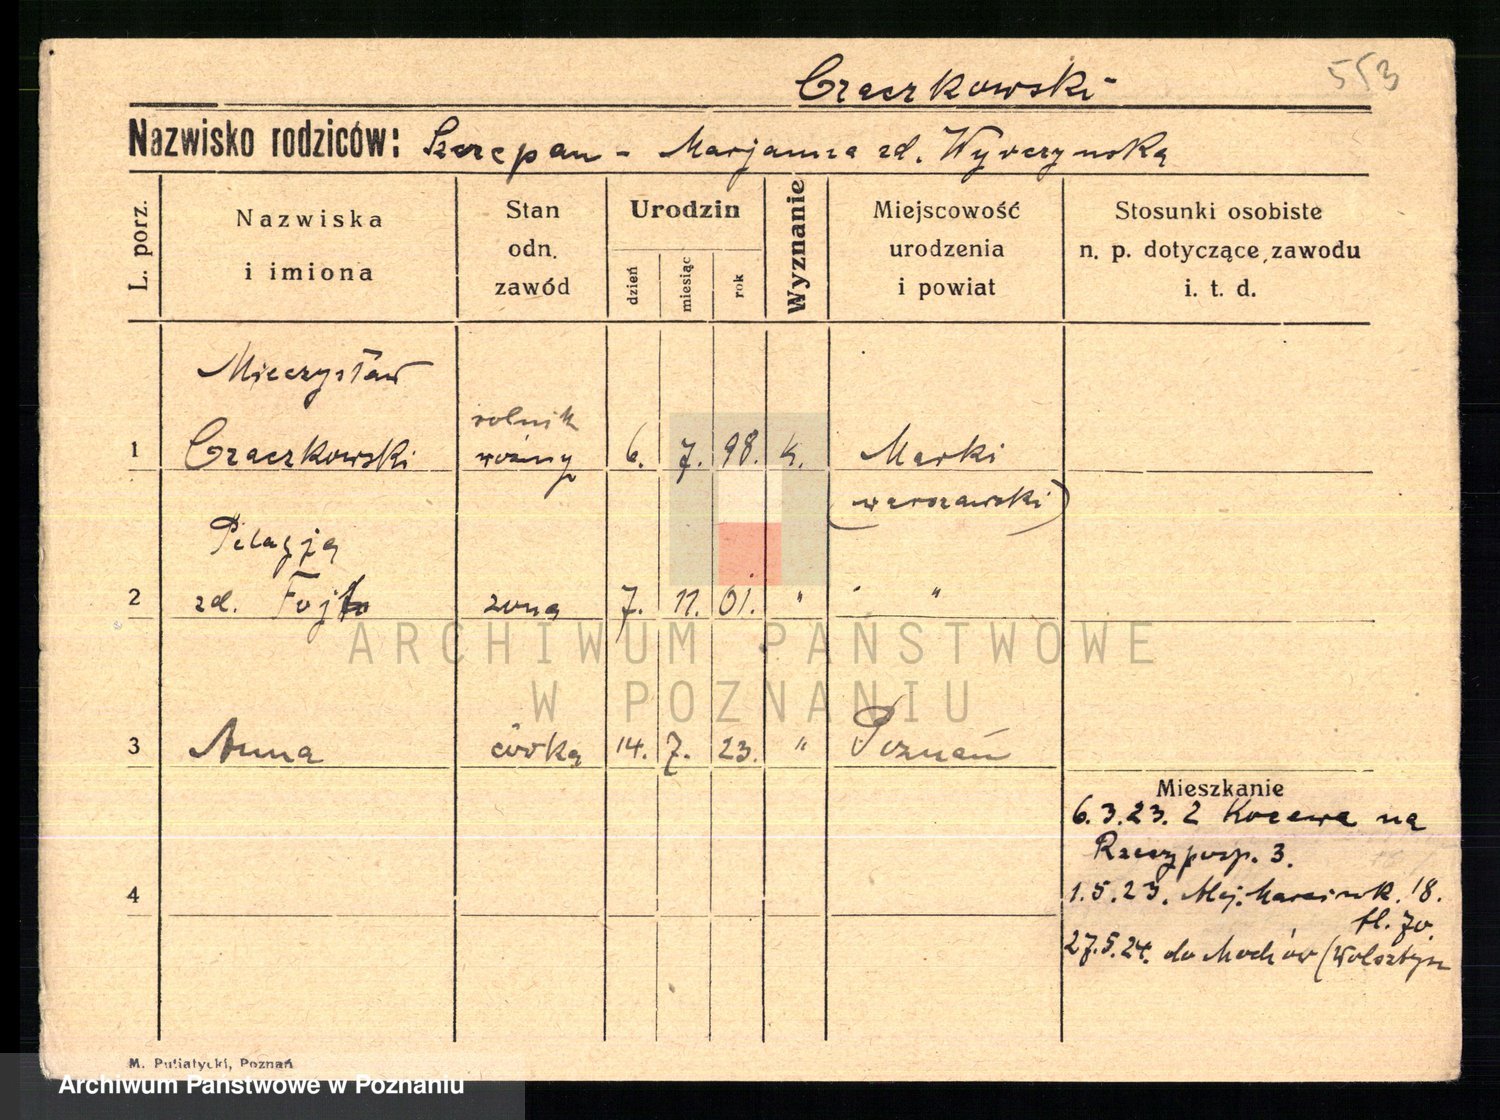 Czaczkowski
553
Nazwisko rodziców: Szczepan - Marjanna zd. Wyrczyńska
L. porz.
Nazwiska i imiona
Stan odn. zawód
Urodzin
dzień
miesiąc
rok
Wyznanie
Miejscowość urodzenia i powiat
Stosunki osobiste n. p. dotyczące zawodu i. t. d.
Mieczysław
rolnik
1 Czaczkowski woźny 6. 7. 98. k. Marki
(warszawski)
Pelagja
2 zd. Fojt żona 7. 11. 01. " " "
ARCHIWUM PAŃSTWOWE
W POZNANIU
3 Anna córka 14. 7. 23. " Poznań
Mieszkanie
6.3.23. Z na
Rzeczyposp. 3.
4
1.5.23. Alej. Marcink. 18.
27.5.24. do Mochów (Wolsztyn
M. Putiatycki, Poznań
Archiwum Państwowe w Poznaniu